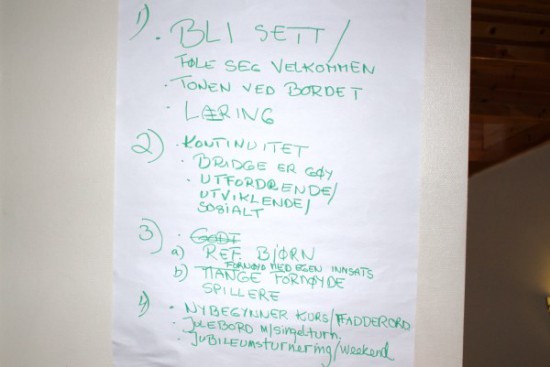 1) . BLI SETT /
FØLE SEG VELKOMMEN
. TONEN VED BORDET
. LÆRING
2) . KONTINUITET
. BRIDGE ER GØY
. UTFORDRENDE/
UTVIKLENDE/
SOSIALT
3) . GODT
a) REF. BJØRN
FORNØYD MED EGEN INNSATS
b) MANGE FORNØYDE
SPILLERE
4) . NYBEGYNNER KURS/FADDERORD
. JULEBORD m/singelturn.
. JUBILEUMSTURNERING/weekend